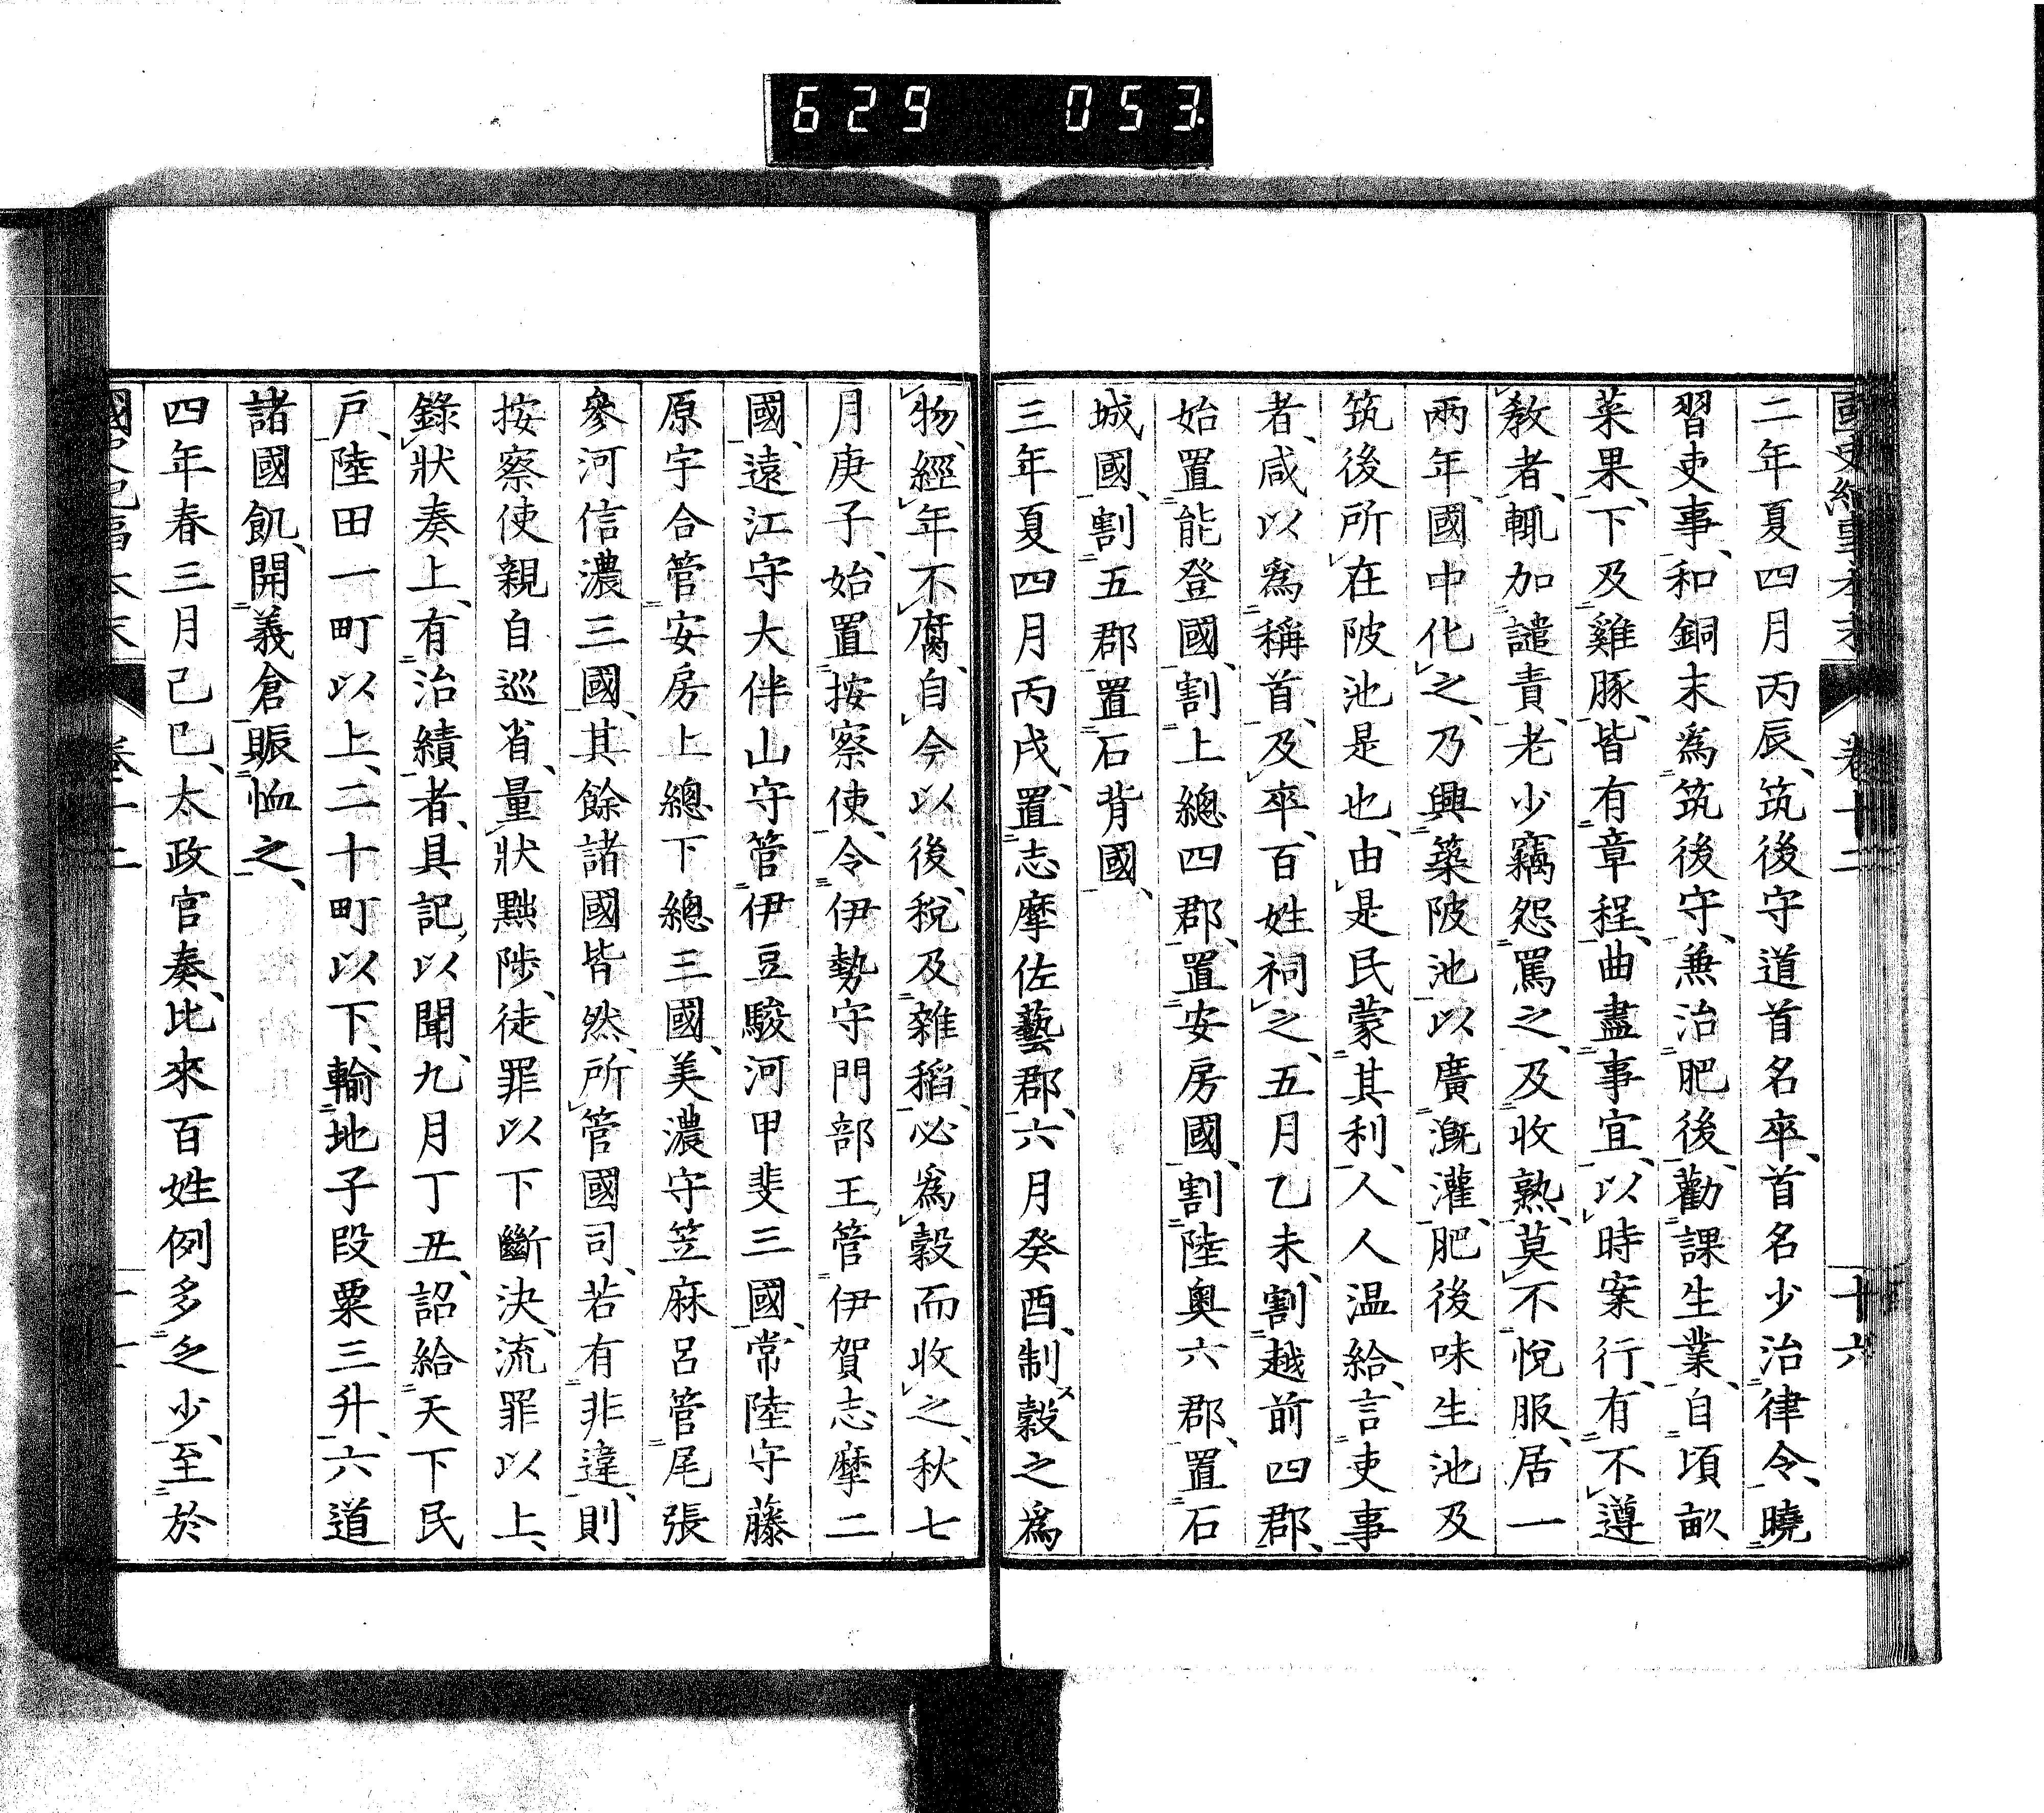 629 053
國史紀事本末 卷十二 十六
二年夏四月丙辰、筑後守道首名卒、首名少治律令、曉
習吏事、和銅末爲筑後守、兼治肥後、勸課生業、自頃畝
菜果、下及雞豚、皆有章程、曲盡事宜、以時案行、有不遵
敎者、輒加譴責、老少竊怨罵之、及收熟、莫不悅服、居一
兩年、國中化之、乃興築陂池、以廣漑灌、肥後味生池及
筑後所在陂池是也、由是民蒙其利、人人温給、言吏事
者、咸以爲稱首、及卒、百姓祠之、五月乙未、割越前四郡、
始置能登國、割上總四郡、置安房國、割陸奧六郡、置石
城國、割五郡置石背國、
三年夏四月丙戌、置志摩佐藝郡、六月癸酉、制穀之爲
物、經年不腐、自今以後、稅及雜稻、必爲穀而收之、秋七
月庚子、始置按察使、令伊勢守門部王、管伊賀志摩二
國、遠江守大伴山守管伊豆駿河甲斐三國、常陸守藤
原宇合管安房上總下總三國、美濃守笠麻呂管尾張
參河信濃三國、其餘諸國皆然、所管國司、若有非違、則
按察使親自巡省、量狀黜陟、徒罪以下斷決、流罪以上、
錄狀奏上、有治績者、具記以聞、九月丁丑、詔給天下民
戶、陸田一町以上、二十町以下、輸地子段粟三升、六道
諸國飢、開義倉賑恤之、
四年春三月己巳、太政官奏、比來百姓例多乏少、至於